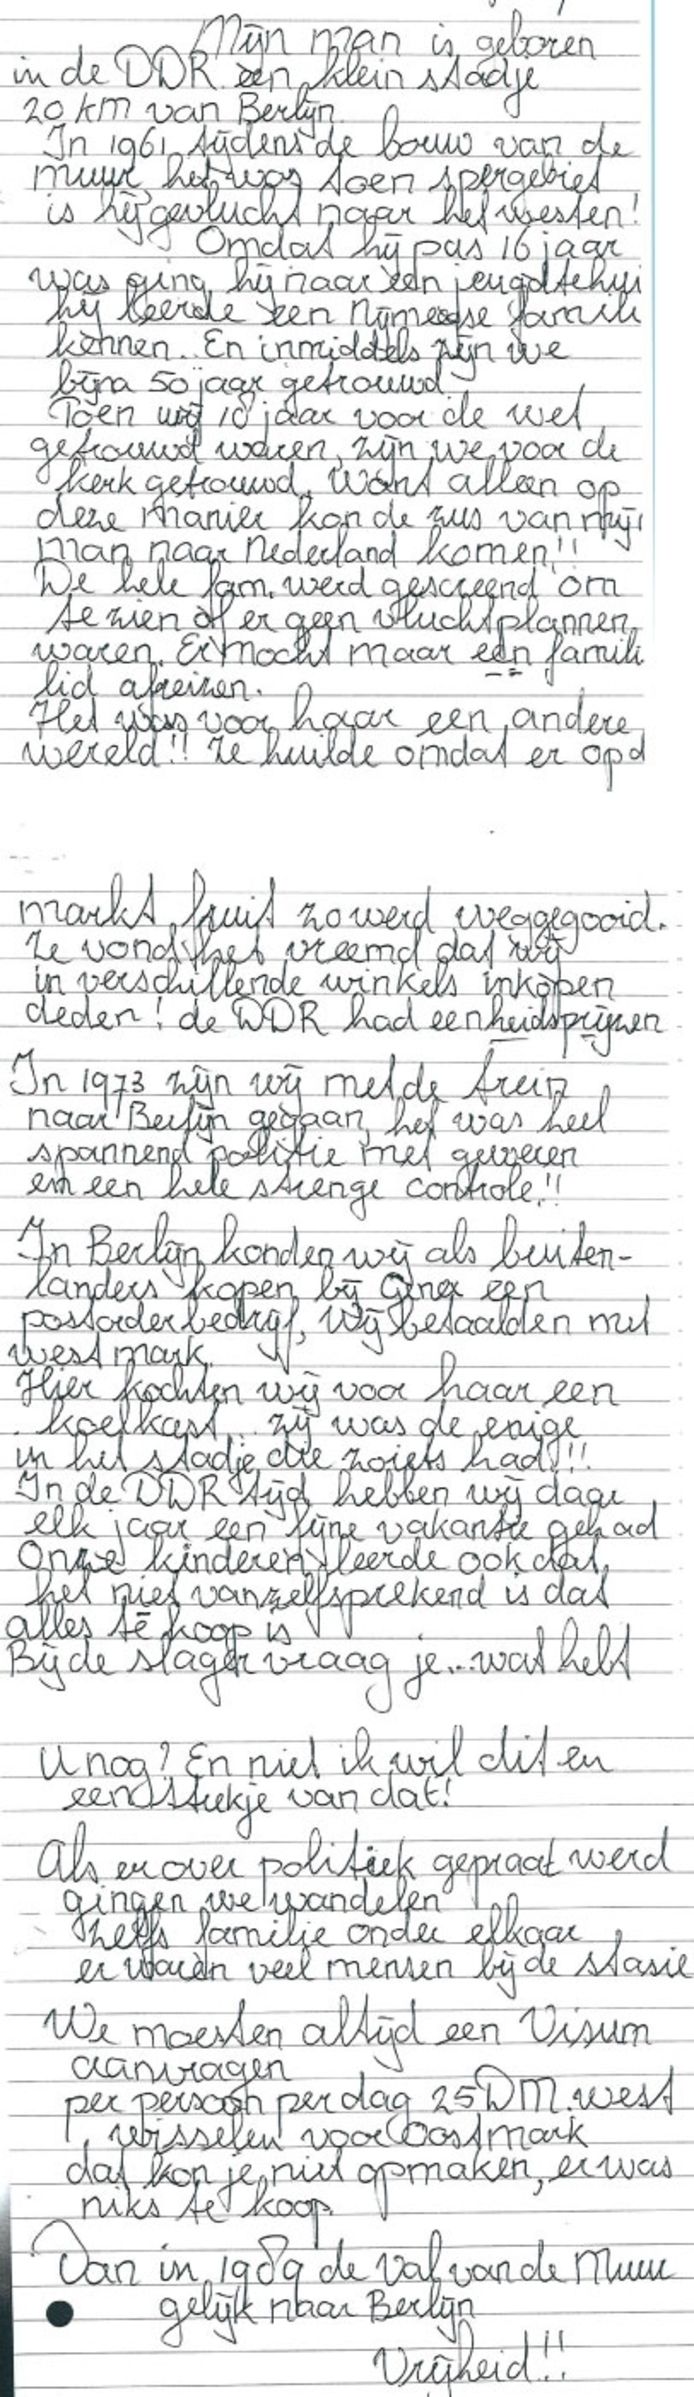 Mijn man is geboren
in de DDR een klein stadje
20 km van Berlijn
In 1961 tijdens de bouw van de
muur, het was toen spergebiet
is hij gevlucht naar het westen!
Omdat hij pas 16 jaar
was ging hij naar een jeugdtehui
hij leerde een Nijmeegse famili
kennen. En inmiddels zijn we
bijna 50 jaar getrouwd.
Toen wij 10 jaar voor de wet
getrouwd waren, zijn we voor de
kerk getrouwd. Want alleen op
deze manier kon de zus van mij
man naar Nederland komen!!
De hele fam. werd gescreend om
te zien of er geen vluchtplannen
waren. Er mocht maar een famili
lid afreizen.
Het was voor haar een andere
wereld!! Ze huilde omdat er op d
markt fruit zo werd weggegooid.
Ze vond het vreemd dat wij
in verschillende winkels inkopen
deden! de DDR had eenheidsprijzen
In 1973 zijn wij met de trein
naar Berlijn gegaan, het was heel
spannend politie met geweren
en een hele strenge controle!!
In Berlijn konden wij als buiten-
landers kopen bij Genex een
postorderbedrijf, wij betaalden met
westmark.
Hier kochten wij voor haar een
koelkast.. zij was de enige
in het stadje die zoiets had!!!
In de DDR tijd hebben wij daar
elk jaar een fijne vakantie gehad
Onze kinderen leerde ook dat
het niet vanzelfsprekend is dat
alles te koop is
Bij de slager vraag je...wat hebt
U nog? En niet ik wil dit en
een stukje van dat!
Als er over politiek gepraat werd
gingen we wandelen
zelfs familie onder elkaar
er waren veel mensen bij de stasie
We moesten altijd een Visum
aanvragen
per persoon per dag 25 DM. west
wisselen voor Oostmark
dat kon je niet opmaken, er was
niks te koop.
Dan in 1989 de Val van de Muur
gelijk naar Berlijn
Vrijheid!!